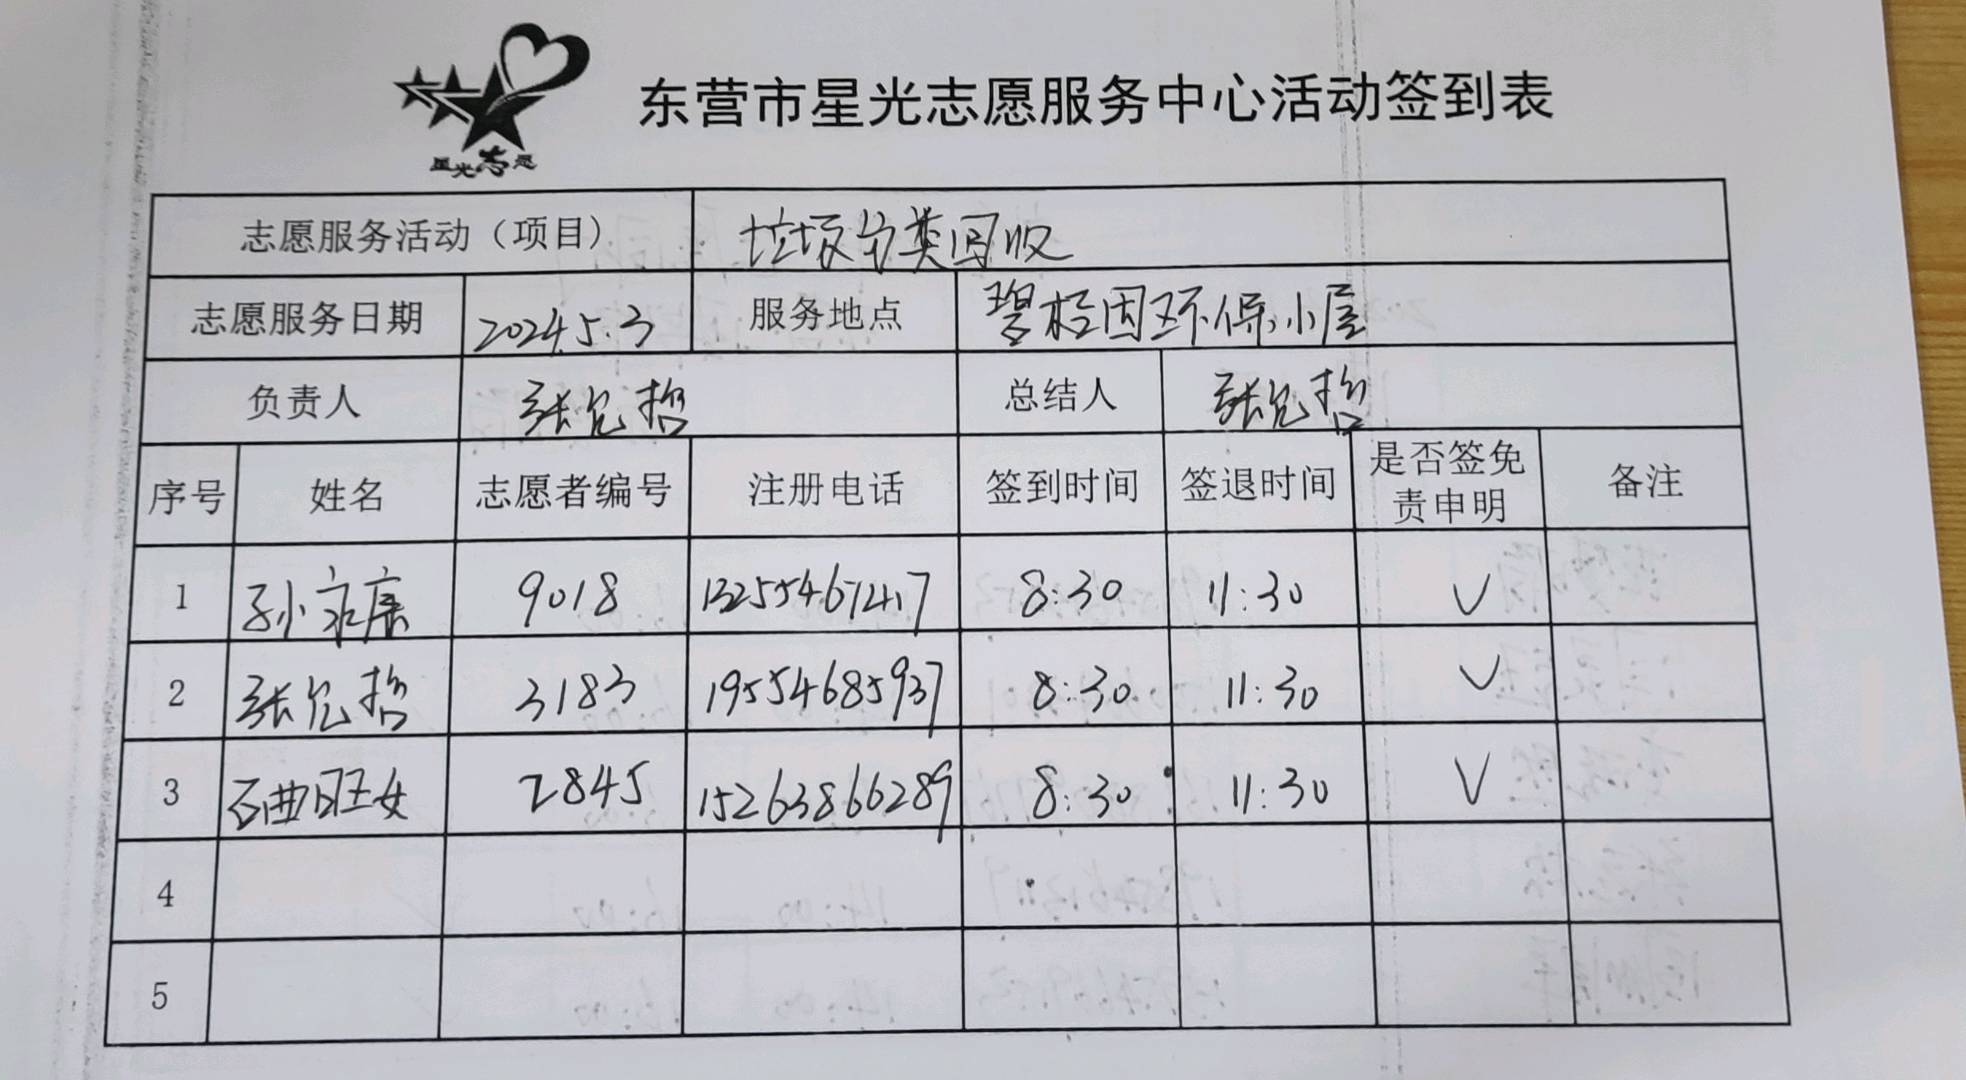 星光志愿
东营市星光志愿服务中心活动签到表
志愿服务活动（项目） 垃圾分类回收
志愿服务日期 2024.5.3 服务地点 碧桂园环保小屋
负责人 张允哲 总结人 张允哲
序号 姓名 志愿者编号 注册电话 签到时间 签退时间 是否签免责申明 备注
1 孙家康 9018 13255467417 8:30 11:30 √
2 张允哲 3183 19554685937 8:30 11:30 √
3 2845 15263866289 8:30 11:30 √
4
5